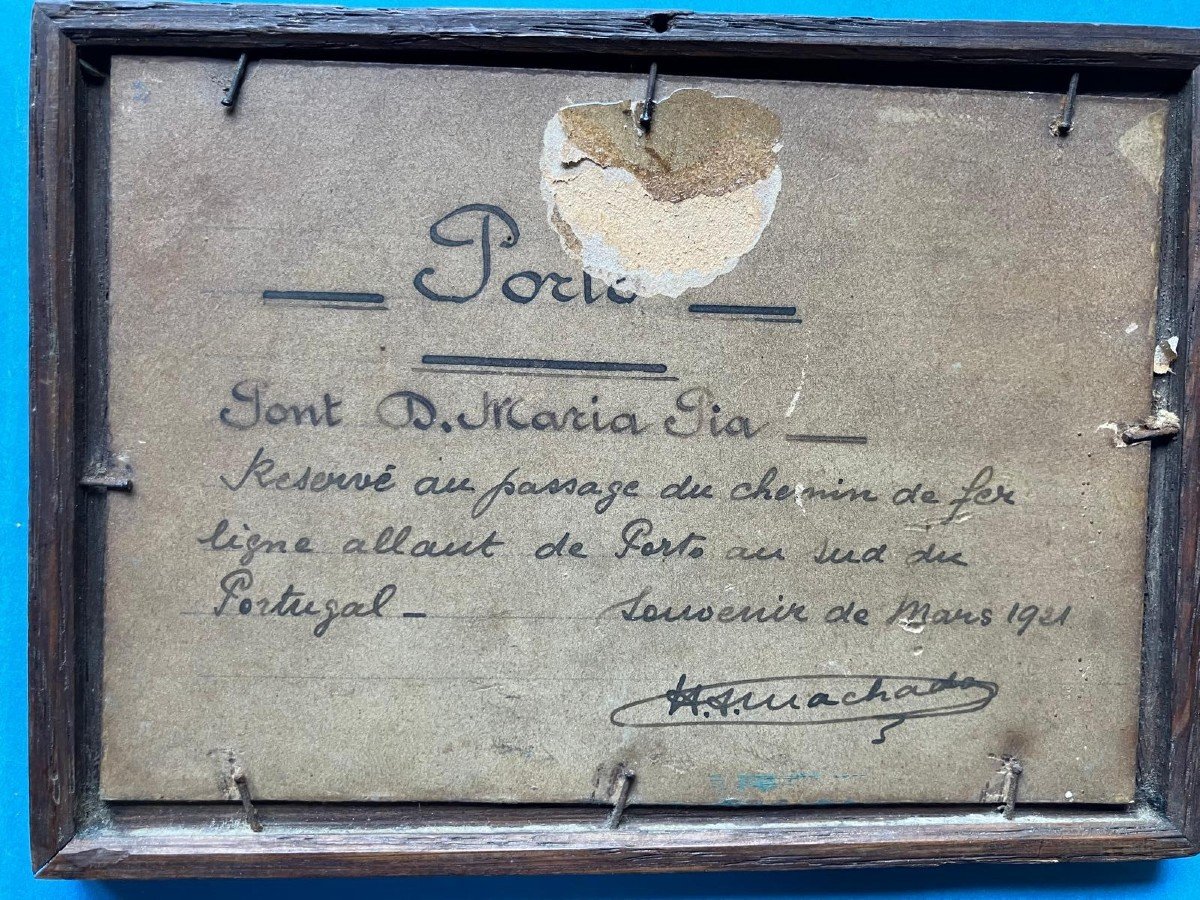 Porto
Pont D. Maria Pia
Reservé au passage du chemin de fer
ligne allant de Porto au sud du
Portugal - Souvenir de Mars 1921
H.S. Machado